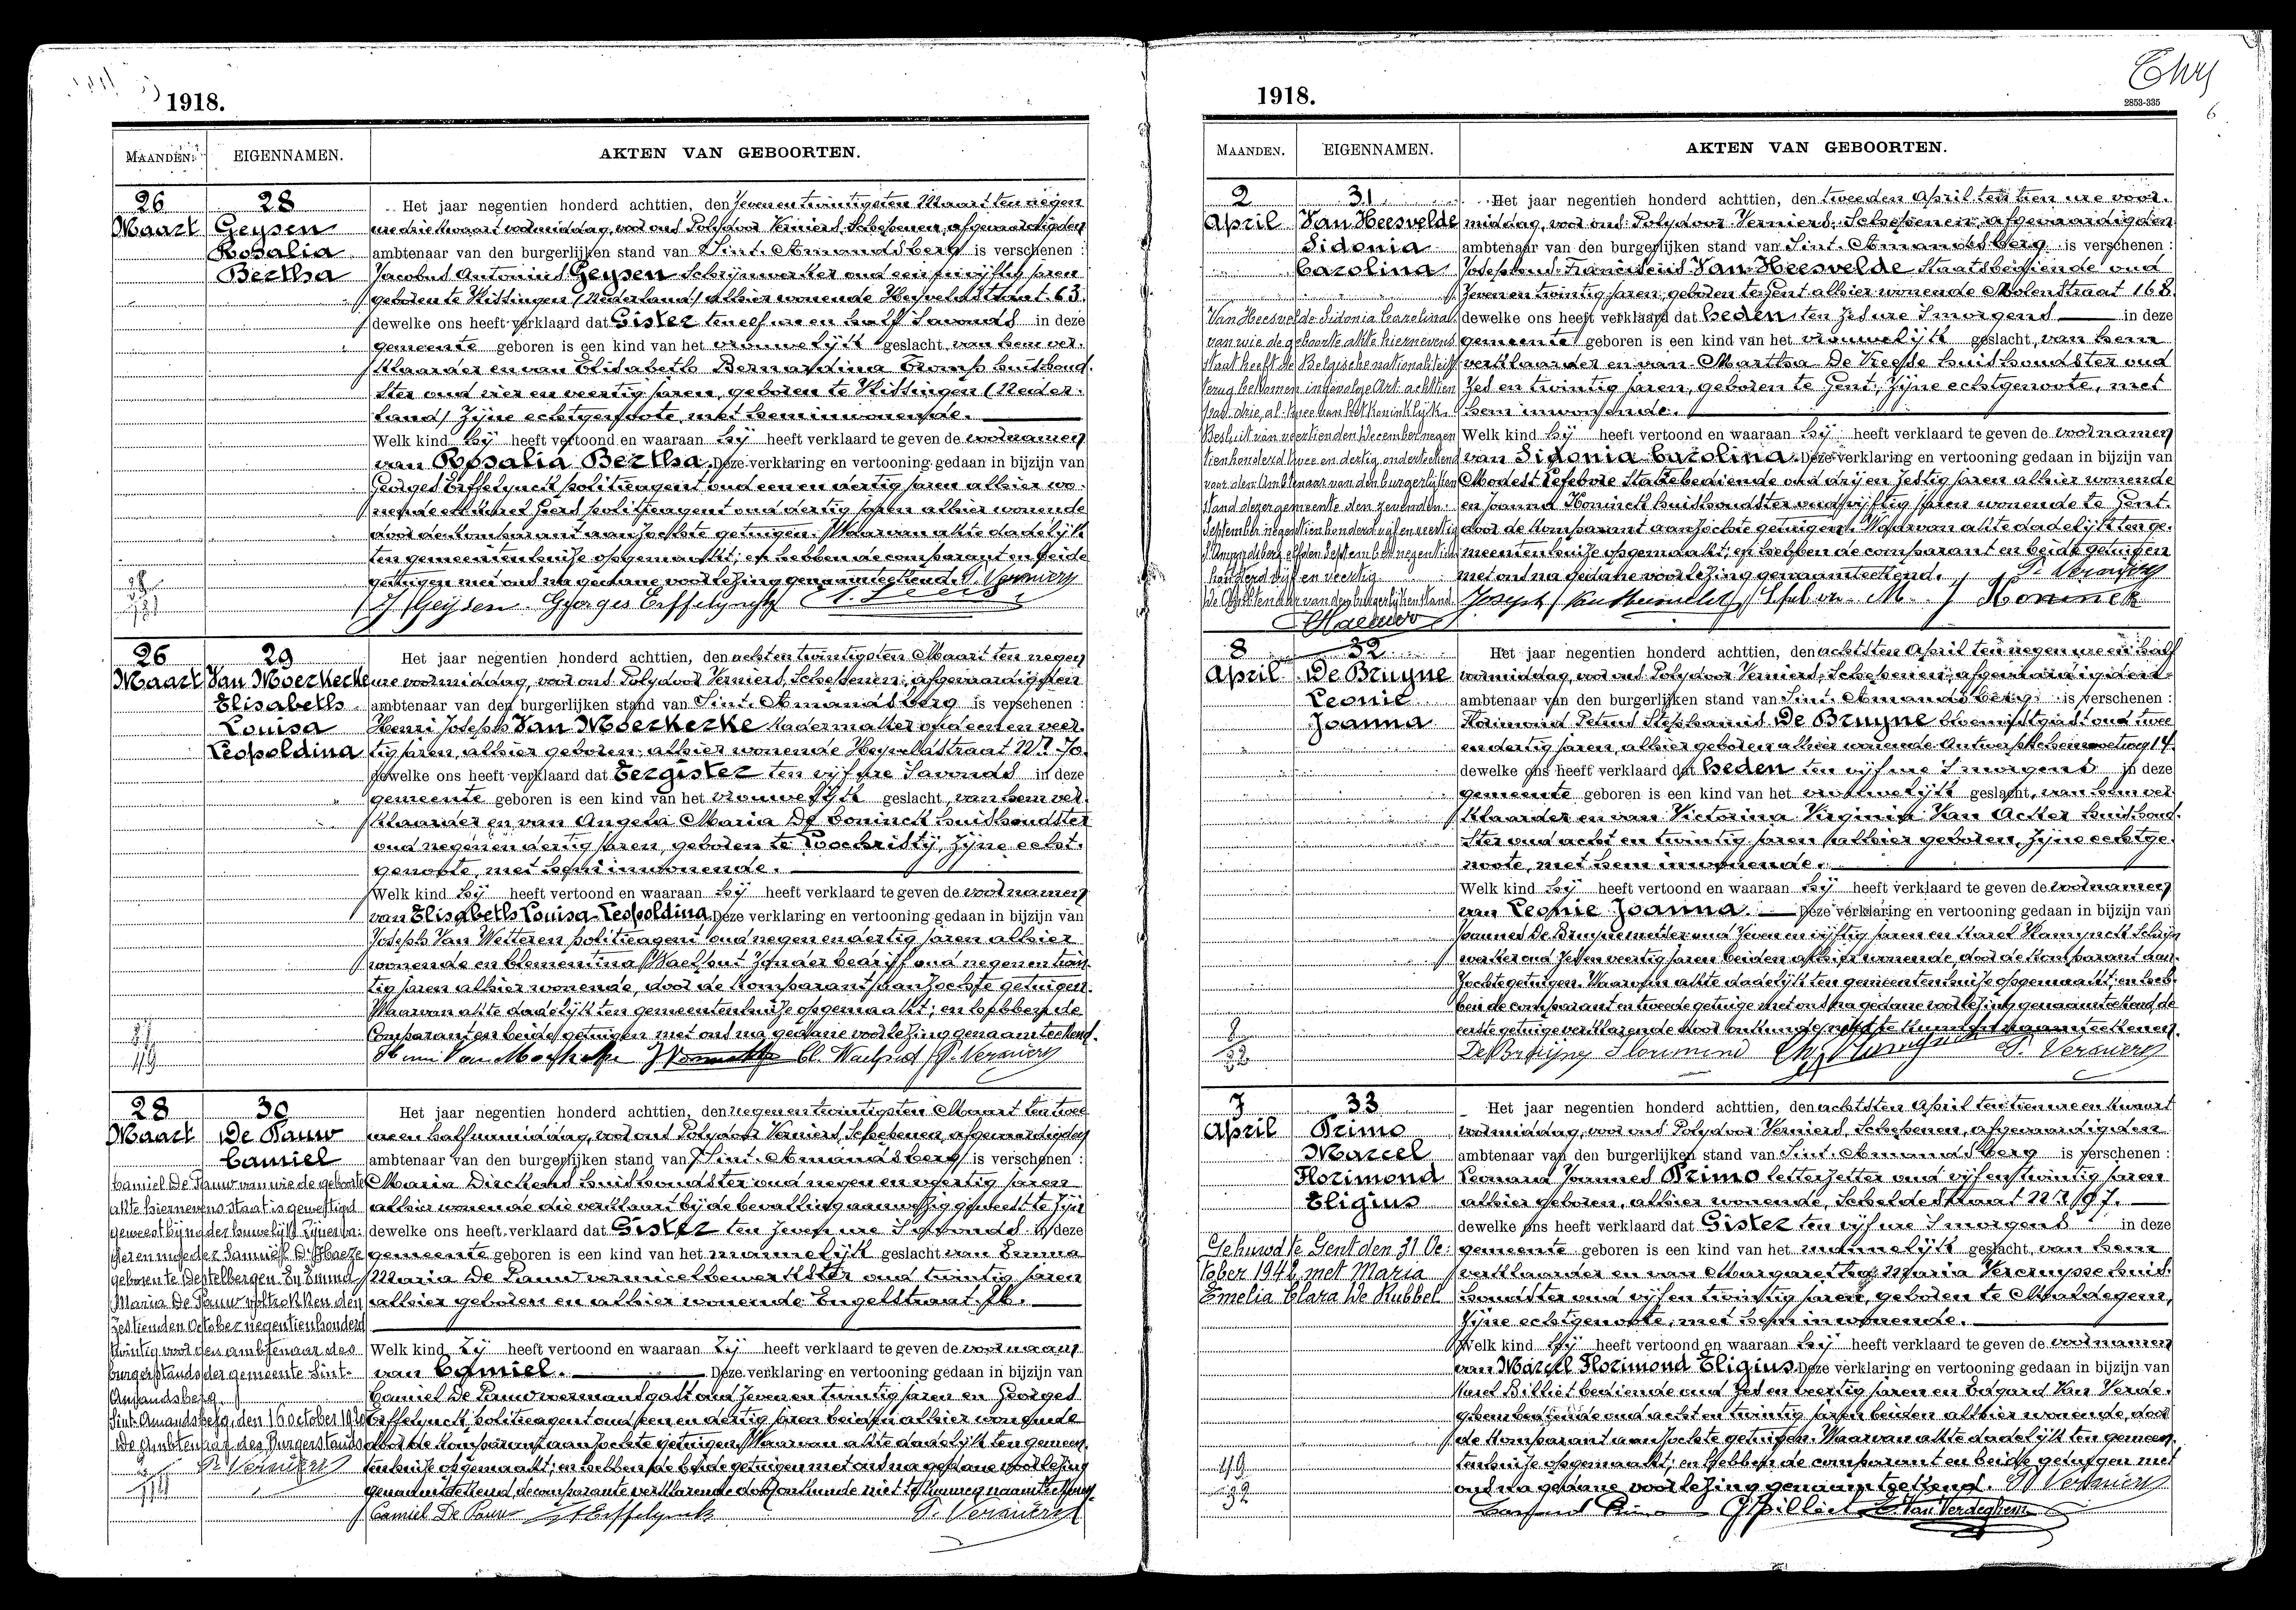 1918.
MAANDEN. EIGENNAMEN. AKTEN VAN GEBOORTEN.
26 28 Het jaar negentien honderd achttien, den zevenentwintigsten Maart ten negen
Maart Geysen ure drie kwaart voormiddag, voor ons Polydoor Verniers, Schepenen, afgevaardigden
Rosalia ambtenaar van den burgerlijken stand van Sint-Amandsberg is verschenen :
Bertha Jacobus Antonius Geysen schrijnwerker oud een en vijftig jaren
geboren te Vlissingen (Nederland) alhier wonende Heyveldstraat 63.
dewelke ons heeft verklaard dat Gister ten elf ure en half s'avonds in deze
gemeente geboren is een kind van het vrouwelijk geslacht, van hem ver-
klaarder en van Elisabeth Bernardina Tromp huishoud-
ster oud vier en veertig jaren, geboren te Vlissingen (Neder-
land) zijne echtgenoote, met hem inwonende.
Welk kind hij heeft vertoond en waaraan hij heeft verklaard te geven de voornamen
van Rosalia Bertha. Deze verklaring en vertooning gedaan in bijzijn van
Georges Erffelynck politieagent oud een en dertig jaren alhier wo-
nende en Geers politieagent oud dertig jaren alhier wonende
door den komparant aanzochte getuigen. Waarvan akte dadelijk
ten gemeentenhuize opgemaakt; en hebben de comparant en beide
getuigen met ons na gedane voorlezing genaamteekend. P. Verniers
J. Geijsen. Georges Erffelynck
26 29 Het jaar negentien honderd achttien, den achtentwintigsten Maart ten negen
Maart Van Moerkerke ure voormiddag, voor ons Polydoor Verniers, Schepenen, afgevaardigden
Elisabeth ambtenaar van den burgerlijken stand van Sint-Amandsberg is verschenen :
Louisa Henri Joseph Van Moerkerke kadermaker oud een en veer-
Leopoldina tig jaren, alhier geboren, alhier wonende Heyveldstraat
dewelke ons heeft verklaard dat Eergister ten vijf ure s'avonds in deze
gemeente geboren is een kind van het vrouwelijk geslacht, van hem ver-
klaarder en van Angela Maria De Coninck huishoudster
oud negen en dertig jaren, geboren te Loochristy, zijne echt-
genoote, met hem inwonende.
Welk kind hij heeft vertoond en waaraan hij heeft verklaard te geven de voornamen
van Elisabeth Louisa Leopoldina. Deze verklaring en vertooning gedaan in bijzijn van
Joseph Van Wetteren politieagent oud negen en dertig jaren alhier
wonende en Clementina zonder bedrijf oud negen en twin-
tig jaren alhier wonende, door de komparant aanzochte getuigen.
Waarvan akte dadelijk ten gemeentenhuize opgemaakt; en hebben de
comparant en beide getuigen met ons na gedane voorlezing genaamteekend.
P. Verniers
28 30 Het jaar negentien honderd achttien, den negenentwintigsten Maart ten twee
Maart De Pauw ure en half namiddag, voor ons Polydoor Verniers, Schepenen, afgevaardigden
Camiel ambtenaar van den burgerlijken stand van Sint-Amandsberg is verschenen :
Camiel De Pauw van wie de geboorte Maria Dierkens huishoudster oud negen en veertig jaren
akte hiernevens staat is gewettigd alhier wonende die verklaart bij de bevalling aanwezig geweest te zijn
geweest bij het huwelijk zijner va- dewelke ons heeft verklaard dat Gister ten zeven ure s'avonds in deze
der en moeder Samuel D'Haeze gemeente geboren is een kind van het mannelijk geslacht van Emma
geboren te Destelbergen En Emma Maria De Pauw vermicelbewerkster oud twintig jaren
Maria De Pauw voltrokken den alhier geboren en alhier wonende Engelstraat
zestienden October negentienhonderd
twintig voor den ambtenaar des Welk kind zij heeft vertoond en waaraan zij heeft verklaard te geven de voornaam
burgerstands der gemeente Sint- van Camiel. Deze verklaring en vertooning gedaan in bijzijn van
Amandsberg Camiel De Pauw voermansgast oud zeven en twintig jaren en Georges
Sint-Amandsberg, den 16 october 1920 Erffelynck politieagent oud een en dertig jaren beiden alhier wonende
De Ambtenaar des Burgerstands door de komparant aanzochte getuigen. Waarvan akte dadelijk ten gemeen-
P. Verniers tenhuize opgemaakt; en hebben de beide getuigen met ons na gedane voorlezing
genaamteekend, de comparante verklarende door onkunde niet te kunnen naamteekenen.
Camiel De Pauw Erffelynck P. Verniers
1918.
2853-335
6
MAANDEN. EIGENNAMEN. AKTEN VAN GEBOORTEN.
2 31 Het jaar negentien honderd achttien, den tweeden April ten tien ure voor-
April Van Heesvelde middag, voor ons Polydoor Verniers, Schepenen, afgevaardigden
Sidonia ambtenaar van den burgerlijken stand van Sint-Amandsberg is verschenen :
Carolina Josephus Franciscus Van Heesvelde Staatsbediende oud
zeven en twintig jaren, geboren te Gent alhier wonende Molenstraat 168.
Van Heesvelde Sidonia Carolina dewelke ons heeft verklaard dat heden ten zes ure s'morgens in deze
van wie de geboorte akte hiernevens gemeente geboren is een kind van het vrouwelijk geslacht, van hem
staat heeft de Belgische nationaliteit verklaarder en van Martha De Vreese huishoudster oud
terug bekomen ingevolge Art. achttien zes en twintig jaren, geboren te Gent, zijne echtgenoote, met
par. drie, al. twee van het Koninklijk hem inwonende.
Besluit van veertienden December negen Welk kind hij heeft vertoond en waaraan hij heeft verklaard te geven de voornamen
tienhonderd twee en dertig, onderteekend van Sidonia Carolina. Deze verklaring en vertooning gedaan in bijzijn van
voor den Ambtenaar van den burgerlijken Modest Lefebvre Statiebediende oud drij en zestig jaren alhier wonende
Stand dezer gemeente den zevenden en Joanna Koninck huishoudster oud vijftig jaren wonende te Gent.
September negentienhonderd vijf en veertig door de komparant aanzochte getuigen. Waarvan akte dadelijk ten ge-
St Amandsberg elfden September negentien meentenhuize opgemaakt; en hebben de comparant en beide getuigen
honderd vijf en veertig met ons na gedane voorlezing genaamteekend. P. Verniers
De Ambtenaar van den burgerlijken stand Joseph Van Heesvelde M. J Koninck
8 32 Het jaar negentien honderd achttien, den achtsten April ten negen ure en half
April De Bruyne voormiddag, voor ons Polydoor Verniers, Schepenen, afgevaardigden
Leonie ambtenaar van den burgerlijken stand van Sint-Amandsberg is verschenen :
Joanna Florimond Petrus Stephanus De Bruyne bloemistgast oud twee
en dertig jaren, alhier geboren alhier wonende Antwerpschensteenweg 14.
dewelke ons heeft verklaard dat heden ten vijf ure s'morgens in deze
gemeente geboren is een kind van het vrouwelijk geslacht, van hem ver-
klaarder en van Victorina Virginia Van Acker huishoud-
ster oud acht en twintig jaren alhier geboren, zijne echtge-
noote, met hem inwonende.
Welk kind hij heeft vertoond en waaraan hij heeft verklaard te geven de voornamen
van Leonie Joanna. Deze verklaring en vertooning gedaan in bijzijn van
Joannes De Bruyne metser oud zeven en vijftig jaren en Karel Schrijn-
werker oud zes en veertig jaren beiden alhier wonende, door de komparant aan-
zochte getuigen. Waarvan akte dadelijk ten gemeentenhuize opgemaakt; en heb-
ben de comparant en tweede getuige met ons na gedane voorlezing genaamteekend, de
8 eerste getuige verklarende door onkunde niet te kunnen naamteekenen.
32 De Bruyne Florimond P. Verniers
7 33 Het jaar negentien honderd achttien, den achtsten April ten tien ure en kwaart
April Primo voormiddag, voor ons Polydoor Verniers, Schepenen, afgevaardigden
Marcel ambtenaar van den burgerlijken stand van Sint-Amandsberg is verschenen :
Florimond Leonard Joannes Primo letterzetter oud vijf en twintig jaren
Eligius alhier geboren, alhier wonende, Scheldestraat
dewelke ons heeft verklaard dat Gister ten vijf ure s'morgens in deze
Gehuwd te Gent den 31 Oc- gemeente geboren is een kind van het mannelijk geslacht, van hem
tober 1942 met Maria verklaarder en van Margaretha Maria Vercruysse huis-
Emelia Clara De Rubbel houdster oud vijf en twintig jaren, geboren te Maldegem,
zijne echtgenoote, met hem inwonende.
Welk kind hij heeft vertoond en waaraan hij heeft verklaard te geven de voornamen
van Marcel Florimond Eligius. Deze verklaring en vertooning gedaan in bijzijn van
Karel Billiet bediende oud zes en veertig jaren en Edgard Van Verde-
ghem bediende oud acht en twintig jaren beiden alhier wonende, door
de komparant aanzochte getuigen. Waarvan akte dadelijk ten gemeen-
tenhuize opgemaakt; en hebben de comparant en beide getuigen met
32 ons na gedane voorlezing genaamteekend. P. Verniers
Billiet E. Van Verdeghem